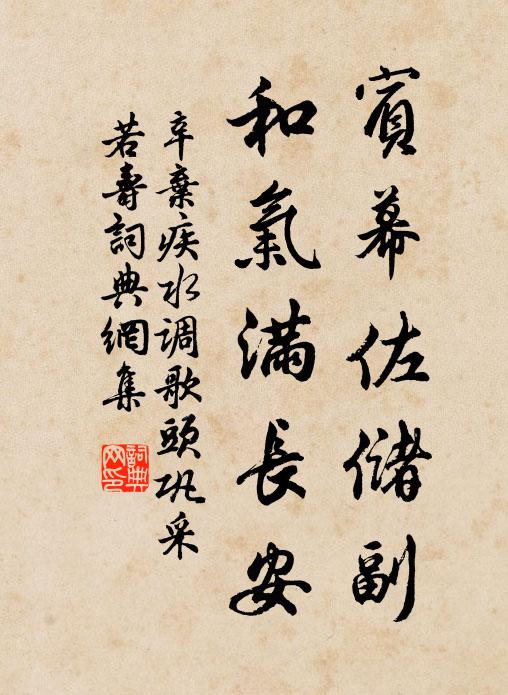 賓幕佐儲副
和氣滿長安
辛棄疾水调歌頭巩采
若壽詞典網集
詞典
网印